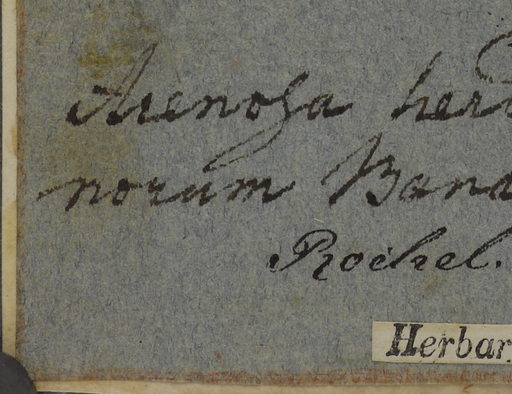 Arenosa her
norum Bana
Rochel.
Herbar